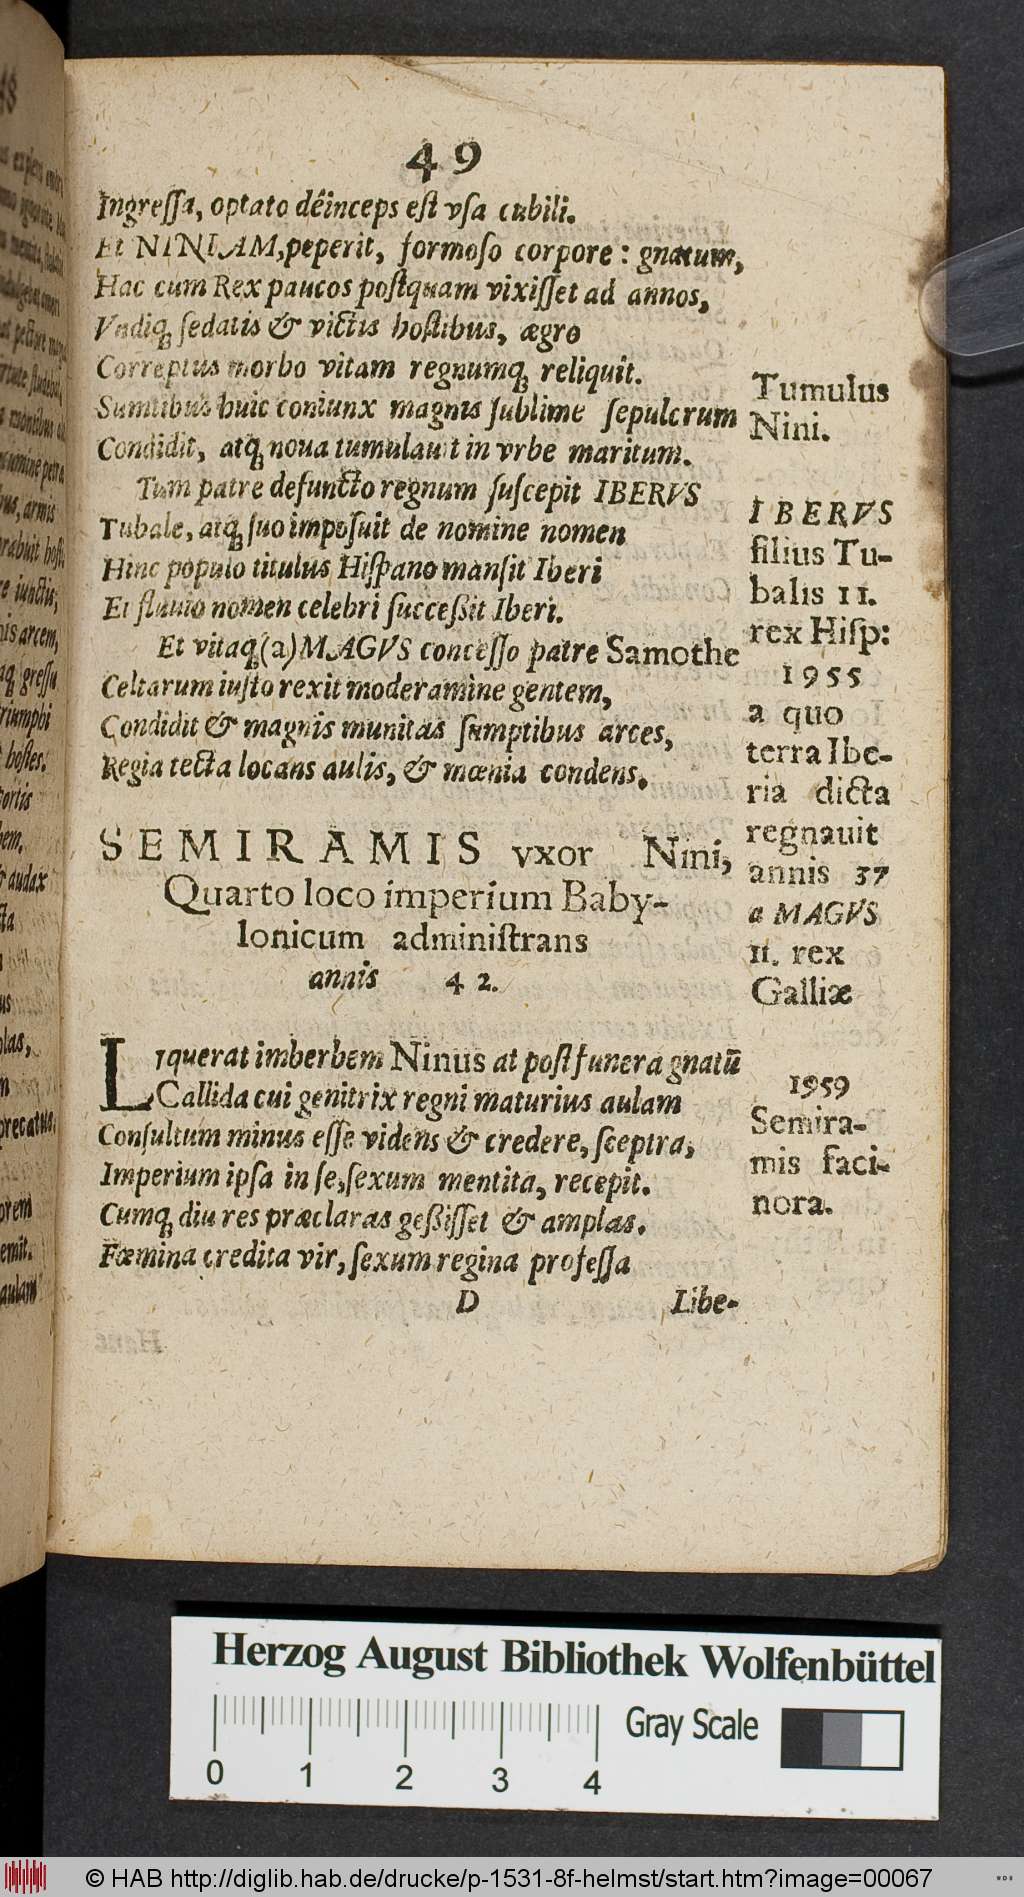 49
Ingreſſa, optato dêinceps eſt vſa cubili.
Et NINIAM, peperit, formoſo corpore: gnatum,
Hac cum Rex paucos poſtquam vixiſſet ad annos,
Vndiq́; ſedatis & victis hoſtibus, ægro
Correptus morbo vitam regnumq́; reliquit.
Sumtibus huic coniunx magnis ſublime ſepulcrum
Condidit, atq́; noua tumulauit in vrbe maritum.
Tum patre defuncto regnum ſuſcepit IBERVS
Tubale, atq́; ſuo impoſuit de nomine nomen
Hinc populo titulus Hiſpano manſit Iberi
Et fluuio nomen celebri ſucceßit Iberi.
Et vitaq́; (a) MAGVS conceſſo patre Samothe
Celtarum iuſto rexit moderamine gentem,
Condidit & magnis munitas ſumptibus arces,
Regia tecta locans aulis, & mœnia condens.
SEMIRAMIS vxor Nini,
Quarto loco imperium Baby-
lonicum adminiſtrans
annis 42.
LIquerat imberbem Ninus at poſt funera gnatū
Callida cui genitrix regni maturius aulam
Conſultum minus eſſe videns & credere, ſceptra,
Imperium ipſa in ſe, ſexum mentita, recepit.
Cumq́; diu res præclaras geßiſſet & amplas.
Fæmina credita vir, ſexum regina profeſſa
D Libe-
Tumulus
Nini.
IBERVS
filius Tu-
balis 11.
rex Hiſp:
1955
a quo
terra Ibe-
ria dicta
regnauit
annis 37
a MAGVS
11. rex
Galliæ
1959
Semira-
mis faci-
nora.
Herzog August Bibliothek Wolfenbüttel
Gray Scale
0 1 2 3 4
© HAB http://diglib.hab.de/drucke/p-1531-8f-helmst/start.htm?image=00067